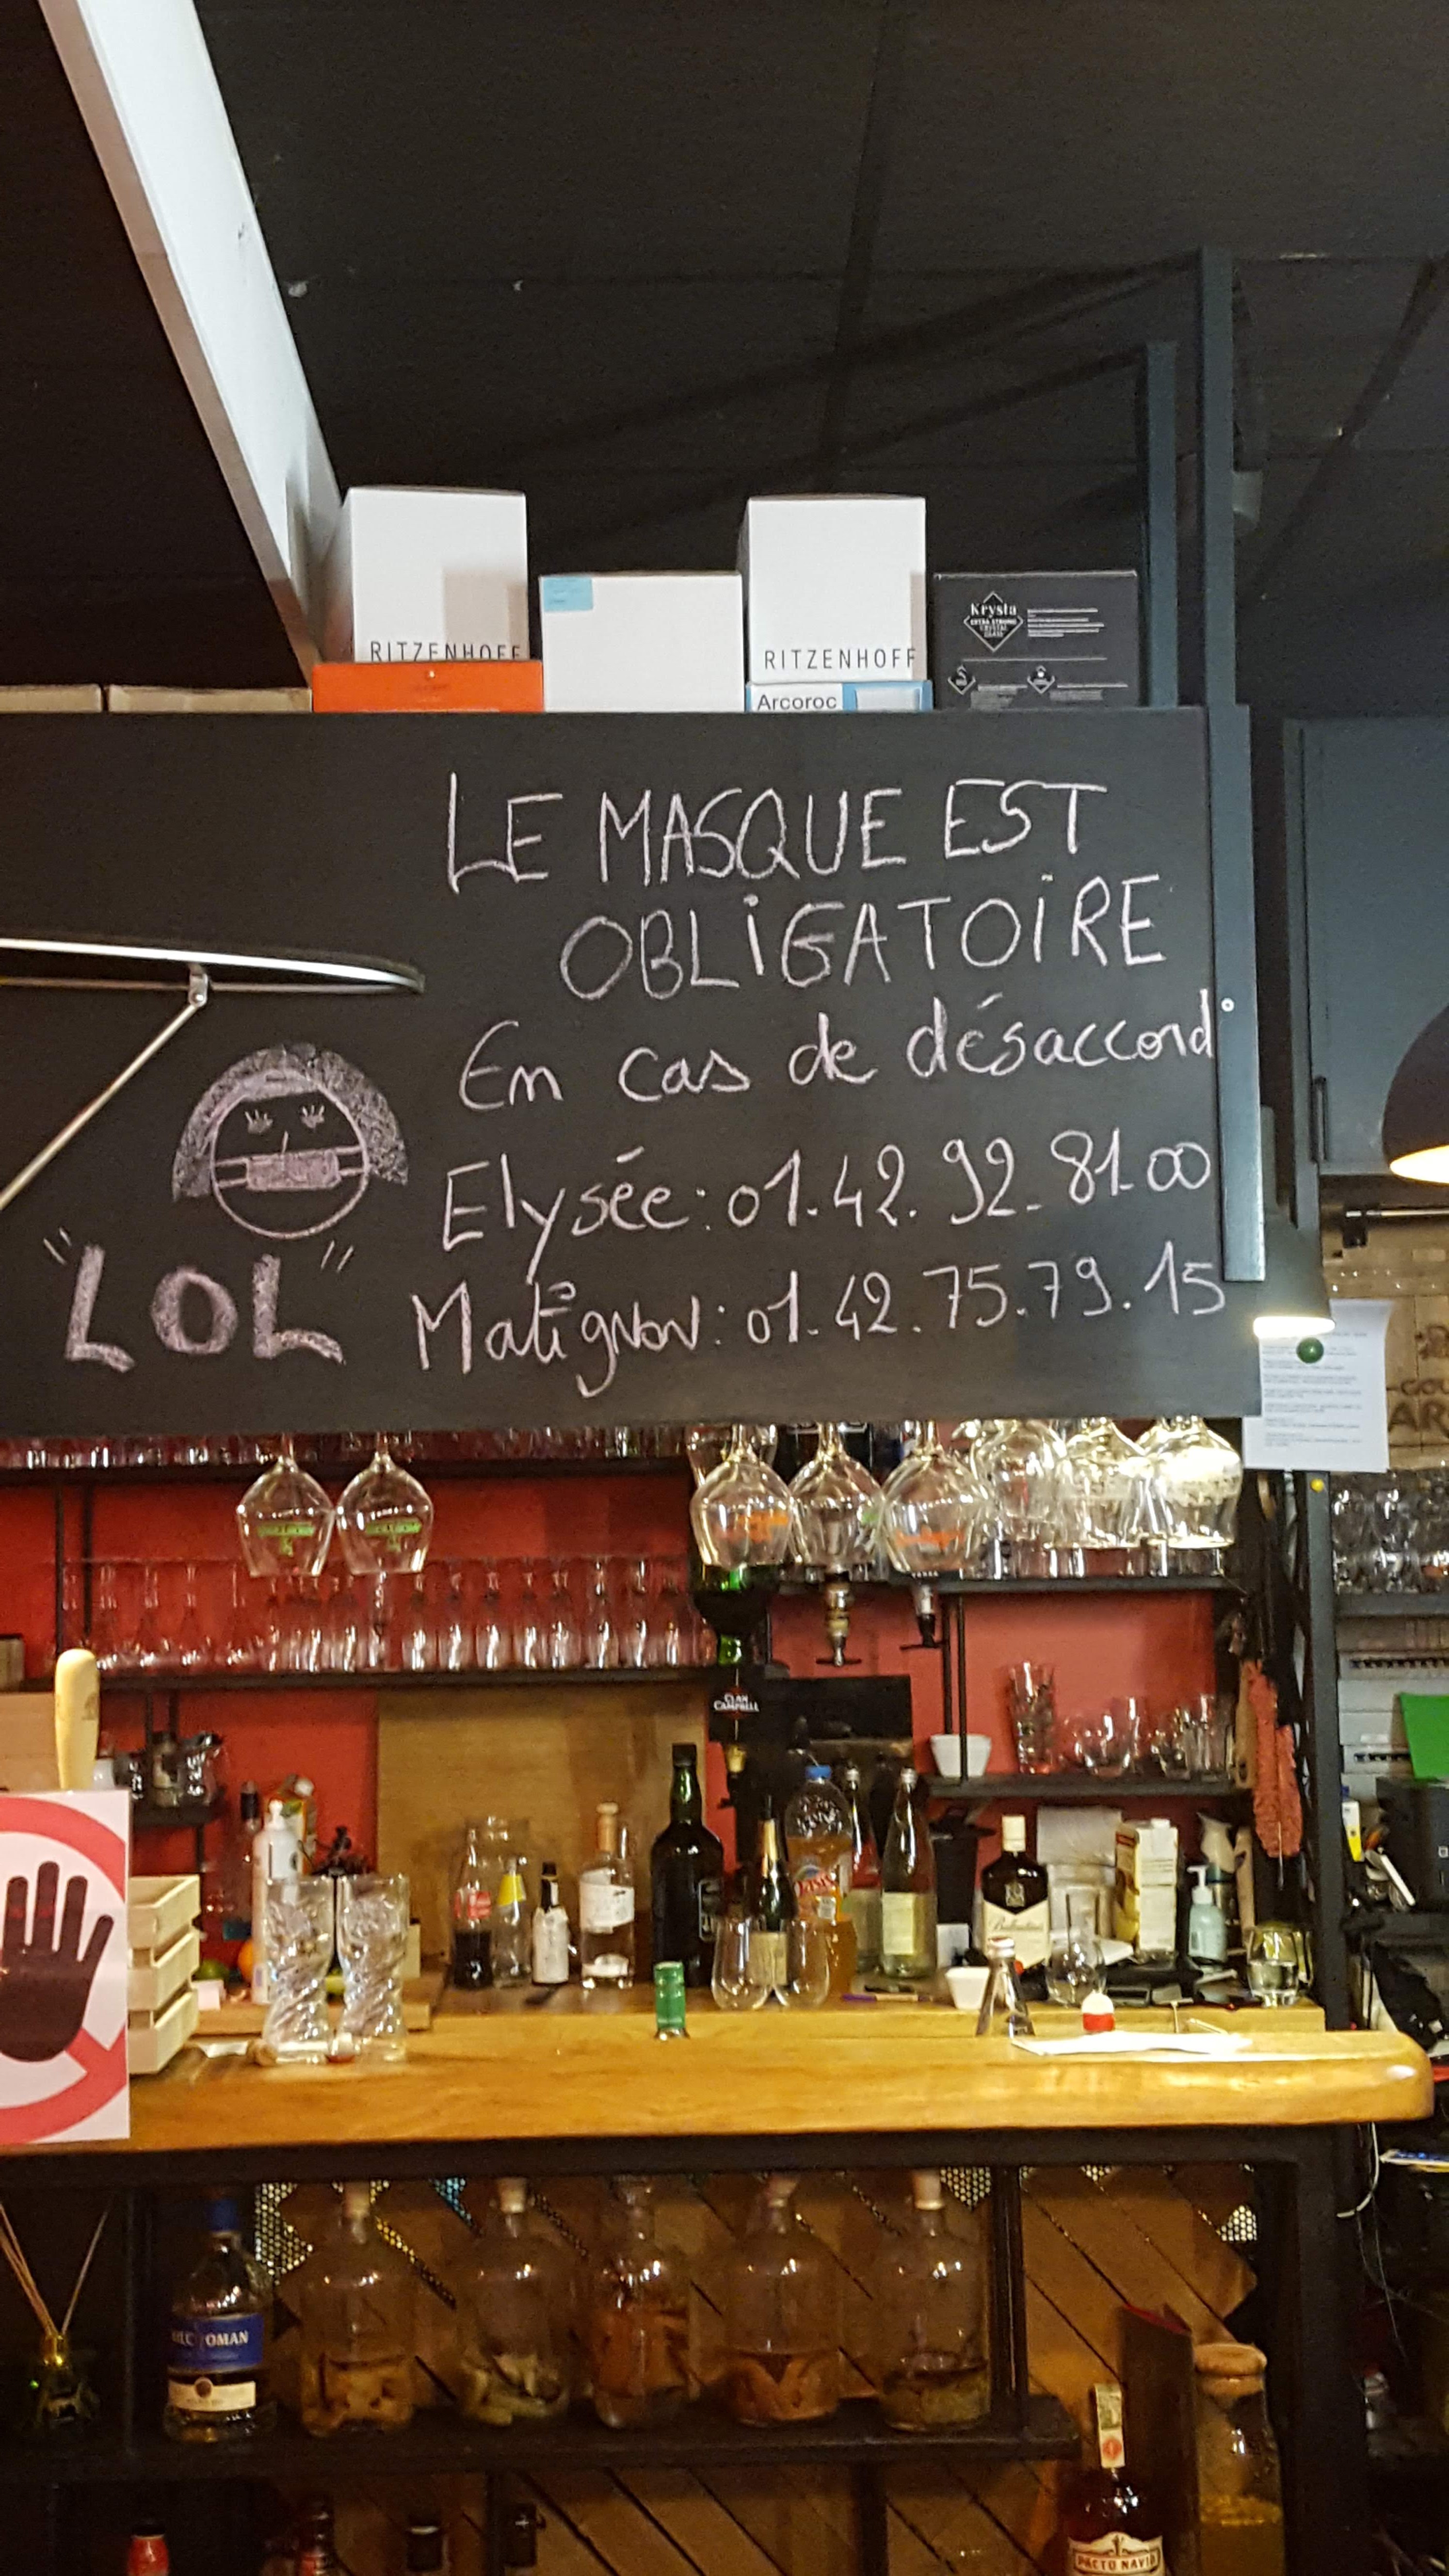 RITZENHOFF
RITZENHOFF
Arcoroc
Krysta
EXTRA STRONG
CRYSTAL
GLASS
LE MASQUE EST
OBLIGATOIRE
En cas de désaccord
Elysée: 01.42.92.81.00
Matignon: 01.42.75.79.15
"LOL"
CLAN
CAMPBELL
Oasis
Ballantine's
OMAN
PACTO NAVIO